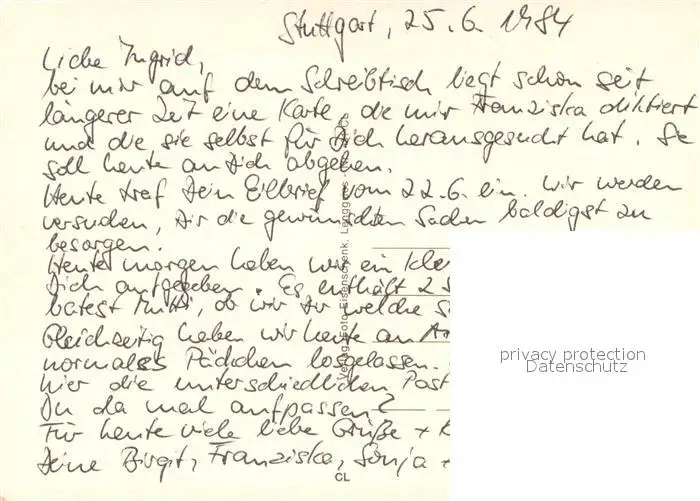 Stuttgart, 25.6.1984
Liebe Ingrid,
bei mir auf dem Schreibtisch liegt schon seit
längerer Zeit eine Karte, die mir Franziska diktiert
und die sie selbst für Dich herausgesucht hat. Sie
soll heute an Dich abgehen.
Heute traf Dein Eilbrief vom 22.6. ein. Wir werden
versuchen, Dir die gewünschten Sachen baldigst zu
besorgen.
Heute morgen haben wir ein
Dich aufgegeben. Es enthält 2
batest Mutti, ob wir Dir welche
Gleichzeitig haben wir heute an
normales Päckchen losgelassen.
hier die unterschiedlichen Post
Du da mal aufpassen?
Für heute viele liebe Grüße +
Deine Birgit, Franziska, Sonja +
Verlag Foto Eisenschenk, Lenggries
CL
privacy protection
Datenschutz